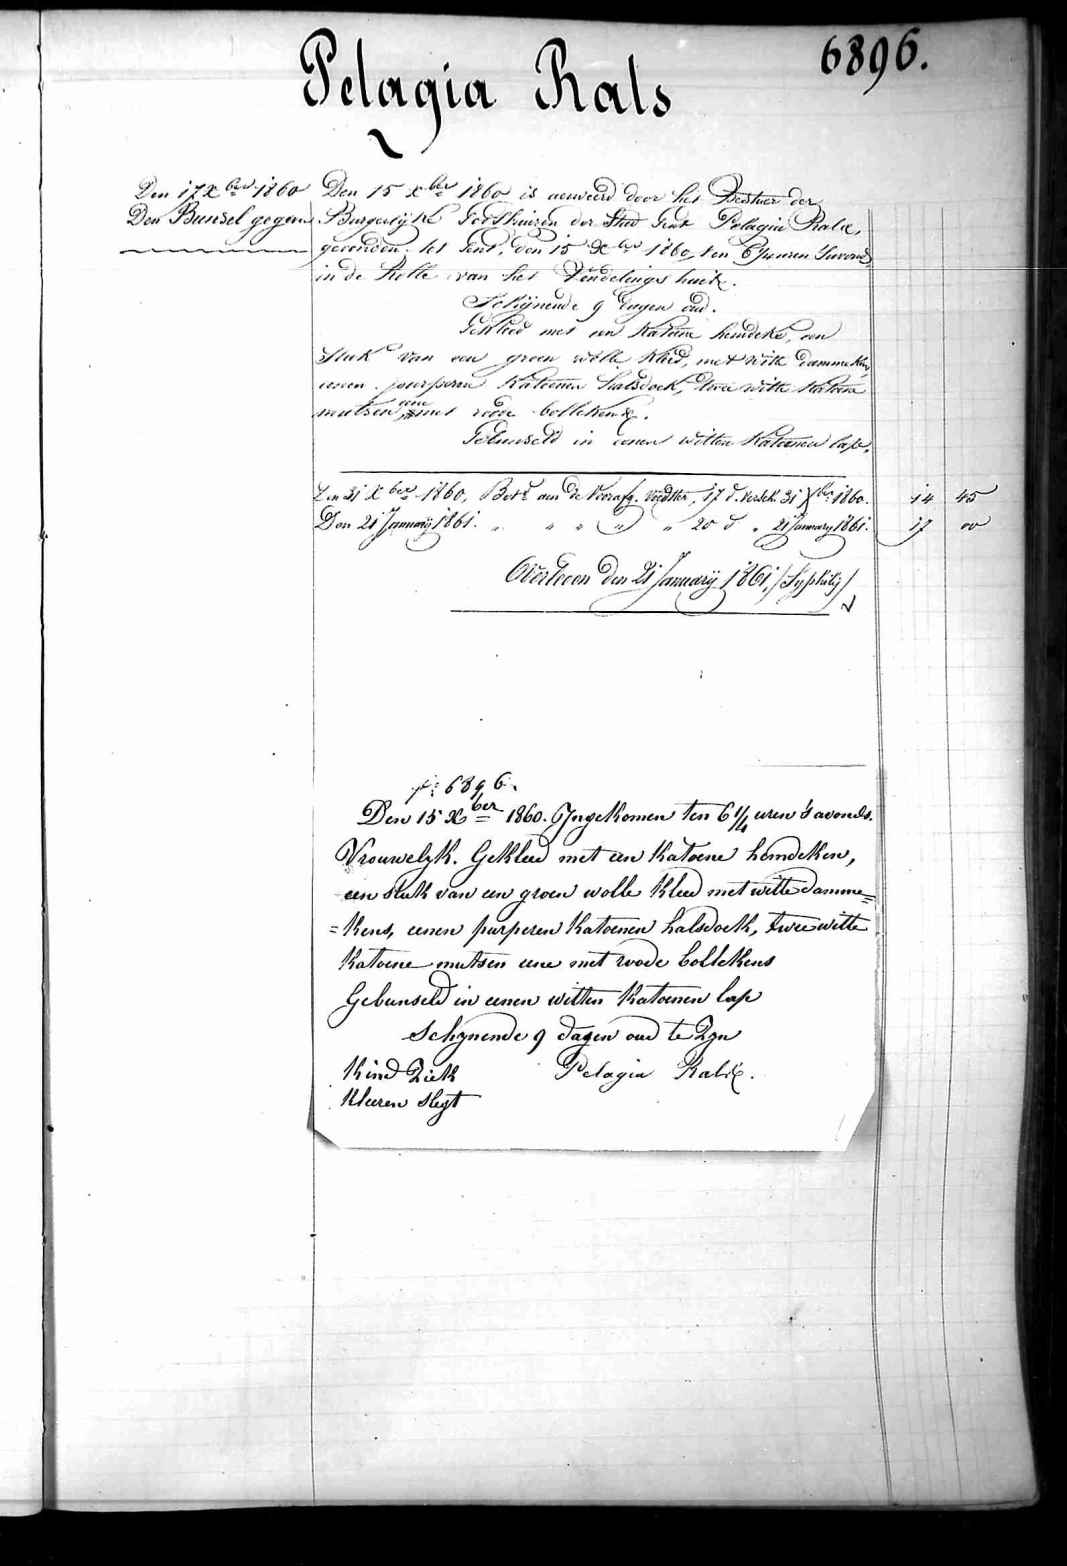 6896.
Pelagia Rals
Den 17 Xber 1860
Den Bunsel gegeven
Den 15 Xber 1860 is aenveerd door het Bestuer der
Burgerlijke Godshuizen der Stad Gent Pelagia Ralx,
gevonden tot Gent, den 15 Xber 1860, ten 6 1/4 uren 's avonds,
in de Rolle van het Vondelings huis.
Schijnende 9 dagen oud.
Gekleed met een katoene hemdeke, een
stuk van een groen wolle kleed, met witte dammekens,
eenen purperen katoenen halsdoek, twee witte katoene
mutsen eene met roode bollekens.
Gebunseld in eenen witten katoenen lap.
Den 31 Xber 1860, Bet. aen de Voedster, 17 d. versch. 31 Xber 1860. 14 45
Den 21 January 1861. " " " " " 20 d " 21 January 1861. 17 00
Overleden den 21 January 1861, (Syphilis)
No 6896.
Den 15 Xber 1860. Ingekomen ten 6 1/4 uren 's avonds.
Vrouwelyk. Gekleed met een katoene hemdeken,
een stuk van een groen wolle kleed met witte damme=
=kens, eenen purperen katoenen halsdoek, twee witte
katoene mutsen eene met roode bollekens
Gebunseld in eenen witten katoenen lap
Schynende 9 dagen oud te Zyn
Kind Ziek Pelagia Ralx.
Kleeren slegt